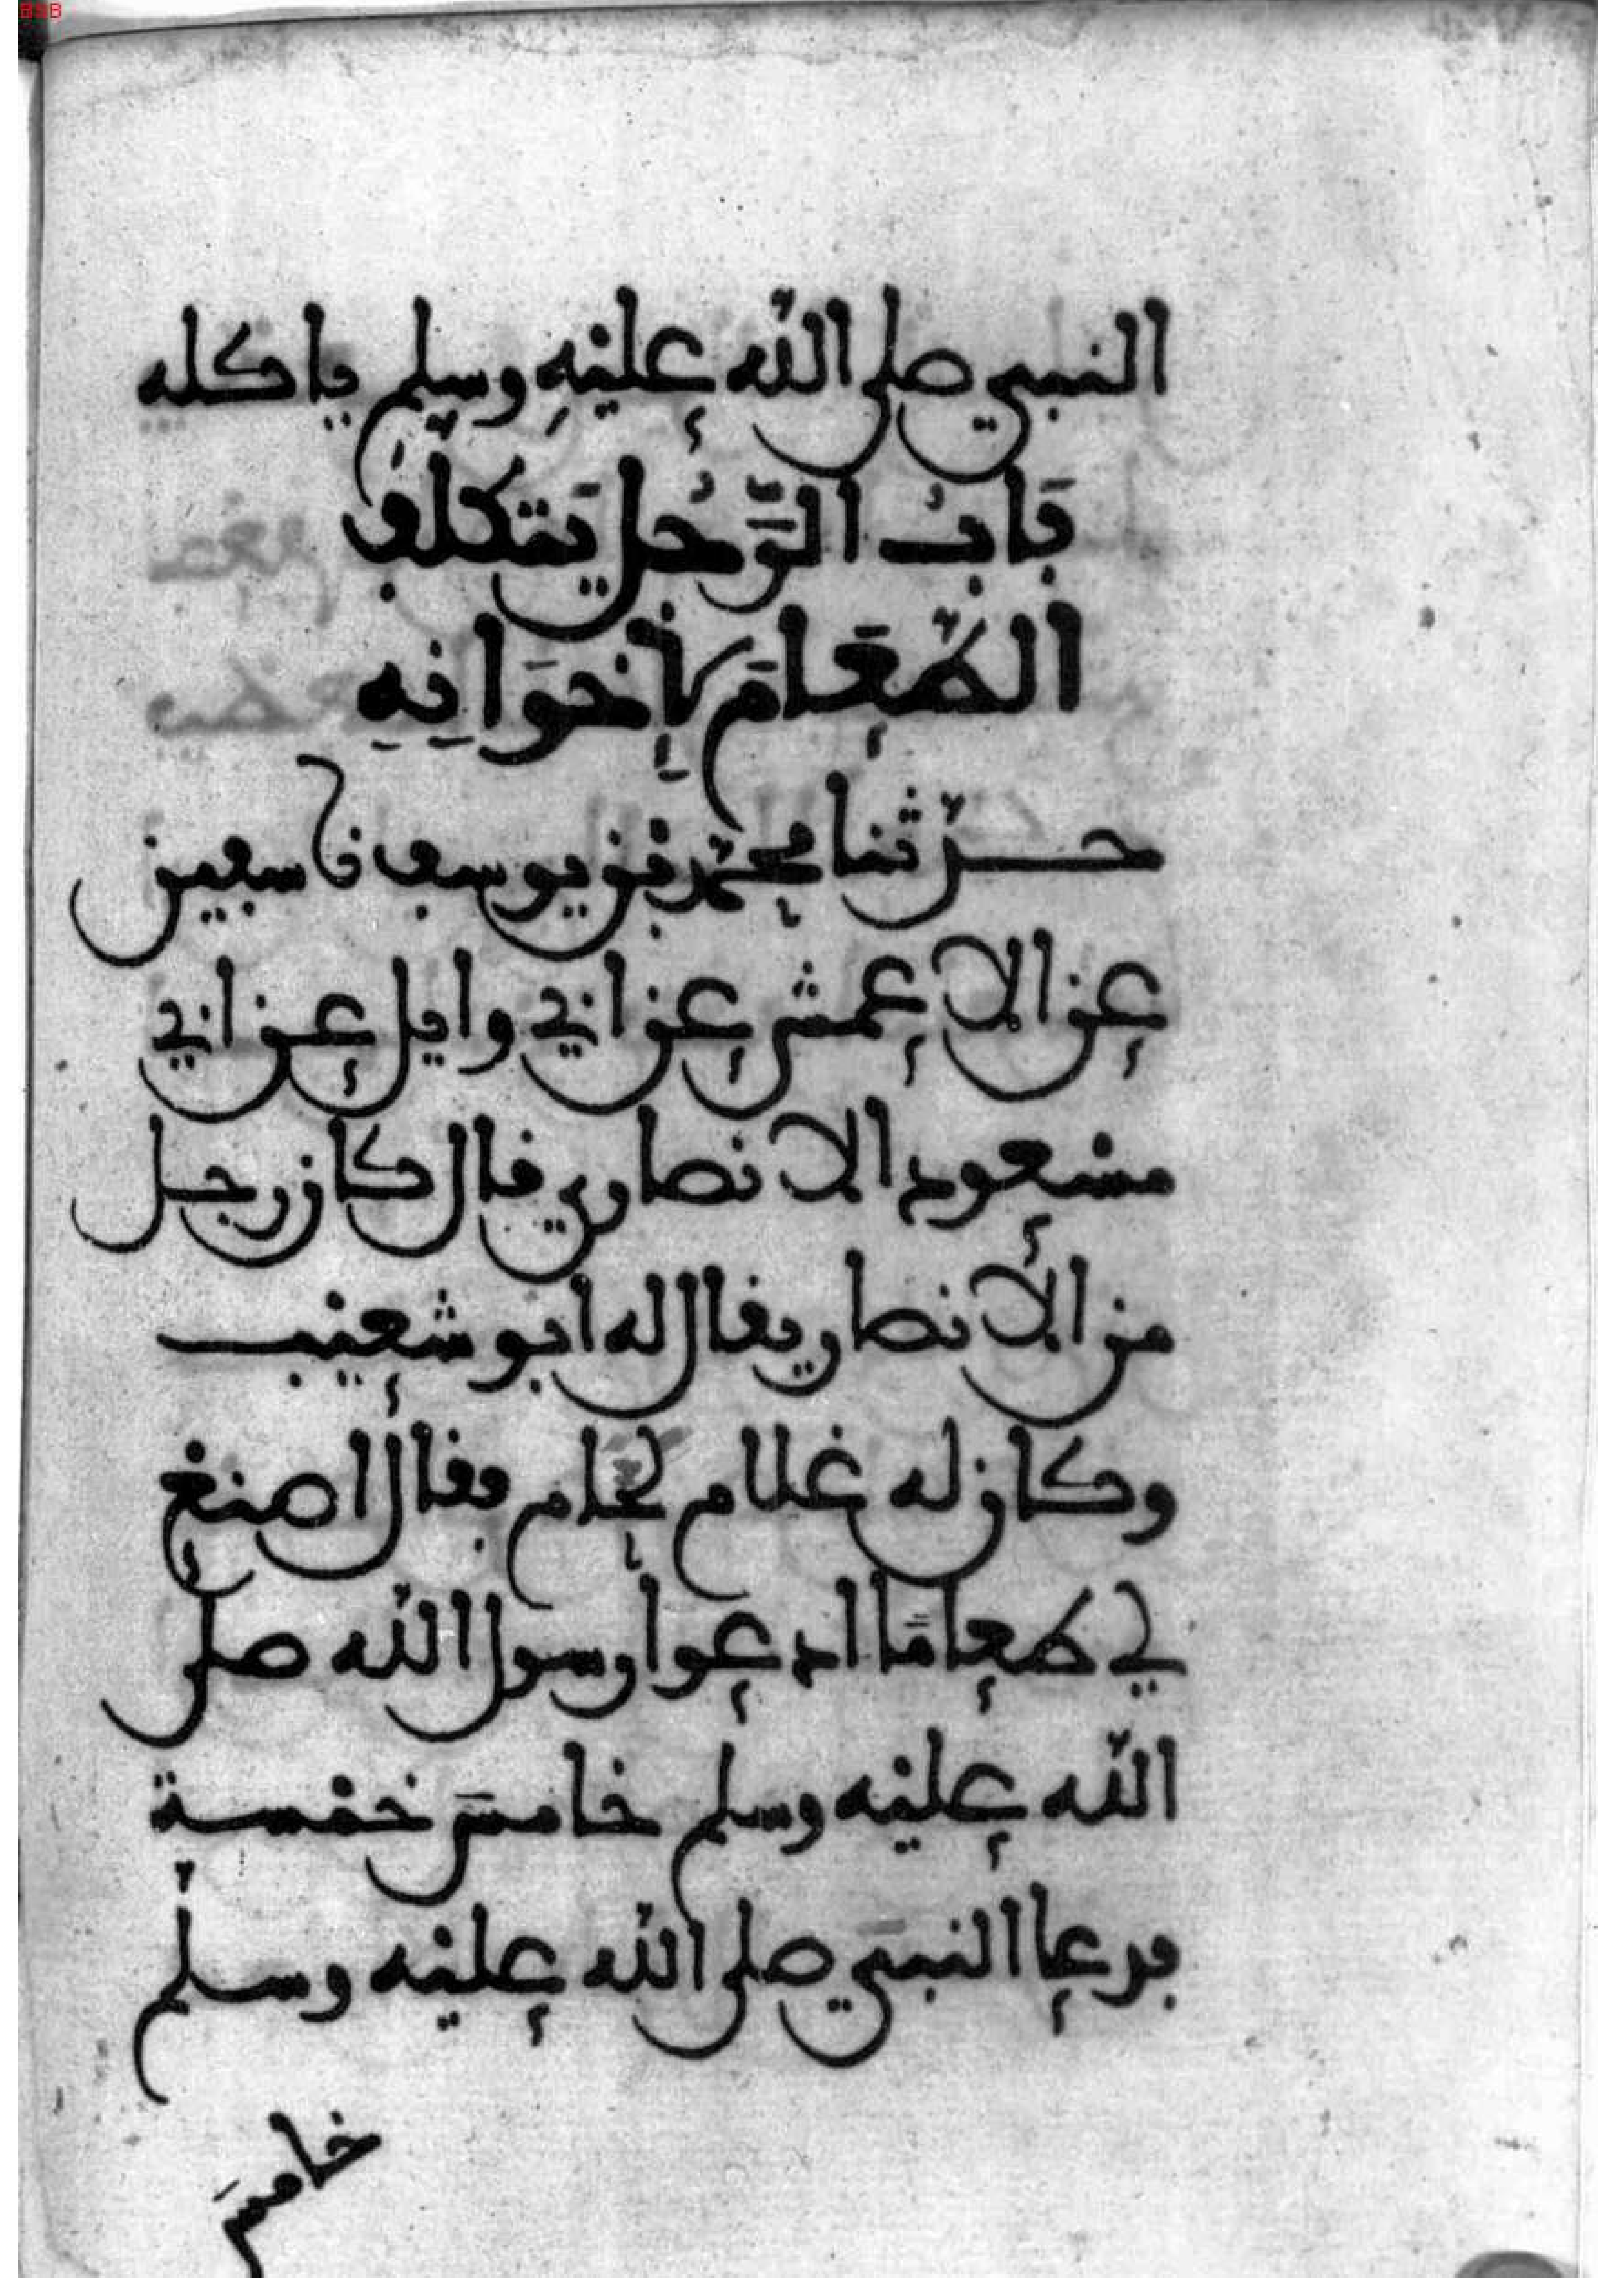 BSB
النبي صلى الله عليهِ وسلم ياكله
بَابُ الرَّجُل يَتَكلّف
الطّعَامَ لإِخوَانِهِ
حدّثنا محمّد بن يوسف نا سفين
عن الاعمش عن ابي وايل عن ابي
مسْعود الانصاري قال كان رجل
من الانصار يقال له ابو شعيْب
وكان له غلام لحام فقال اصنع
لي طعامًا ادعوا رسول الله صلى
الله عليْه وسلم خامسَ خمْسة
فدعا النبيَ صلى الله عليْه وسلم
خامسَ